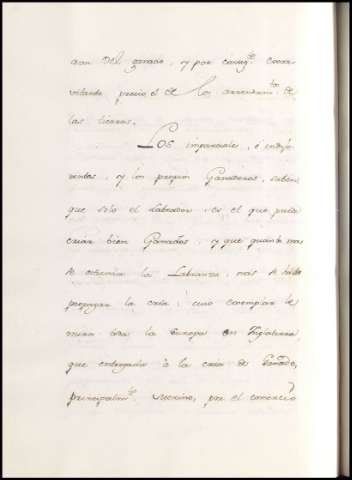 del ganado, y por consig.te
precio el de los arrendam.tos de
las tierras.
Los imparciales, é indife-
rentes, y los propios Ganaderos, saben
que solo el Labrador es el que puede
criar bien Ganados, y que quanto mas
se la Labranza, mas se
la cria; cuio exemplar le
mira la Europa en Inglaterra,
que entregada á la cria de Ganado,
principalm.te por el comercio